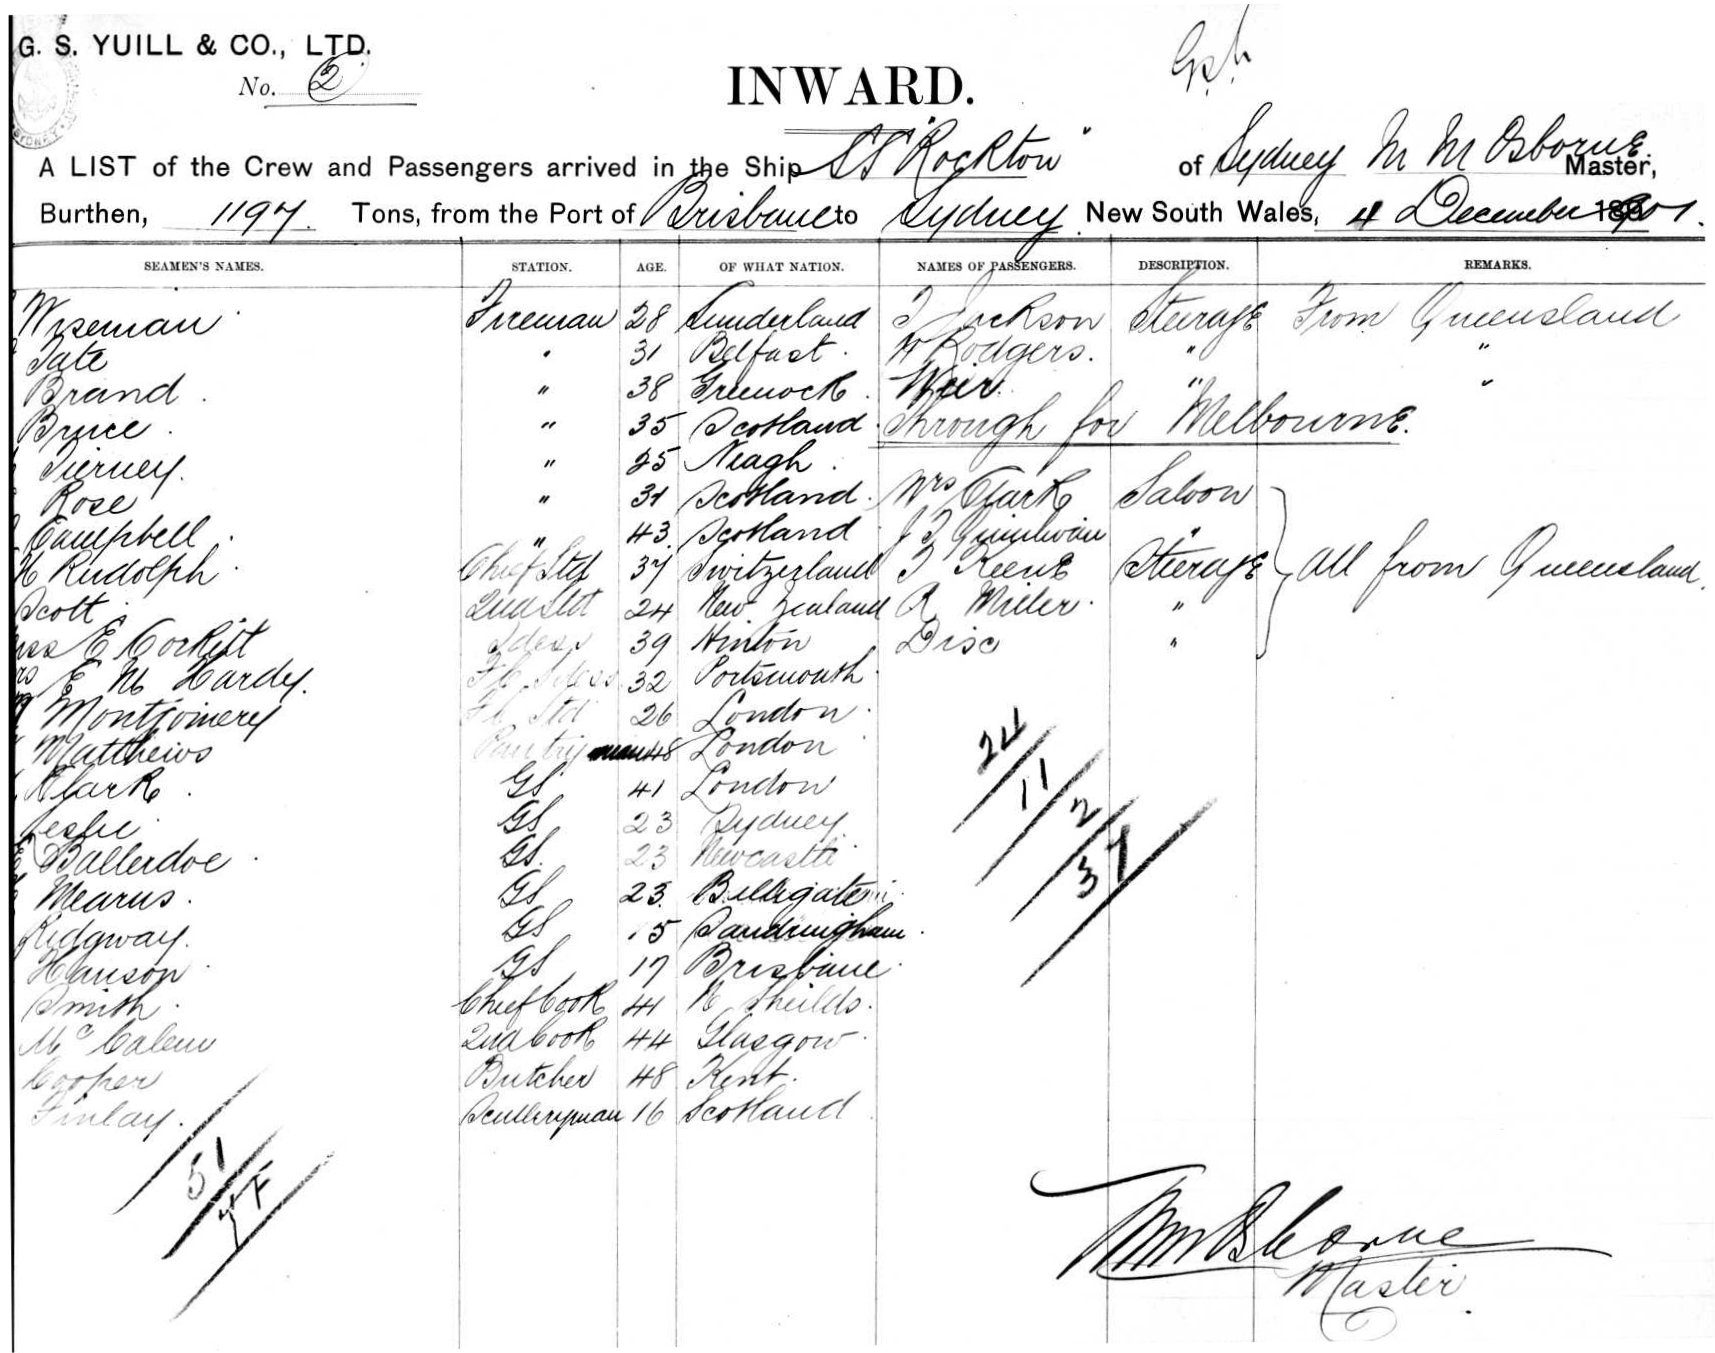 G. S. YUILL & CO., LTD.
No. 2
INWARD.
A LIST of the Crew and Passengers arrived in the Ship SS "Rockton" of Sydney M M Osborne Master,
Burthen, 1197 Tons, from the Port of Brisbane to Sydney New South Wales, 4 December 1901.
SEAMEN'S NAMES. STATION. AGE. OF WHAT NATION. NAMES OF PASSENGERS. DESCRIPTION. REMARKS.
Wiseman Fireman 28 Sunderland T Jackson Steerage From Queensland
Tate " 31 Belfast W Rodgers. " "
Brand " 38 Greenock Weir " "
Bruce " 35 Scotland Through for Melbourne.
Tierney. " 25 Neagh
Rose " 31 Scotland Mrs Clark Saloon
Campbell " 43 Scotland J T "
H Rudolph Chief Std 37 Switzerland T Keene Steerage All from Queensland.
Scott 2nd Std 24 New Zealand R Miller "
E Corkitt 39 Hinton Disc "
E M Hardy. 32 Portsmouth
Montgomery Std 26 London
Matthews Pantryman 48 London
Clark GS 41 London
Leslie GS 23 Sydney
Ballerdoe GS 23 Newcastle
Mearns GS 23
Ridgway. GS 15 Sandringham
Hanson GS 17 Brisbane
Smith Chief Cook 41 N Sheilds.
Mc 2nd Cook 44 Glasgow
Cooper Butcher 48 Kent.
Finlay. Sculleryman 16 Scotland
24
11
2
37
51
74
MM Osborne
Master